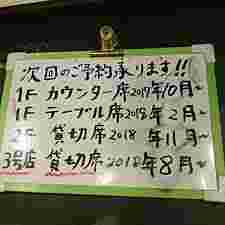 次回のご予約承ります!!
1F カウンター席2017年10月〜
1F テーブル席2018年2月〜
2F 貸切席2018年11月〜
3号店 貸切席2018年8月〜